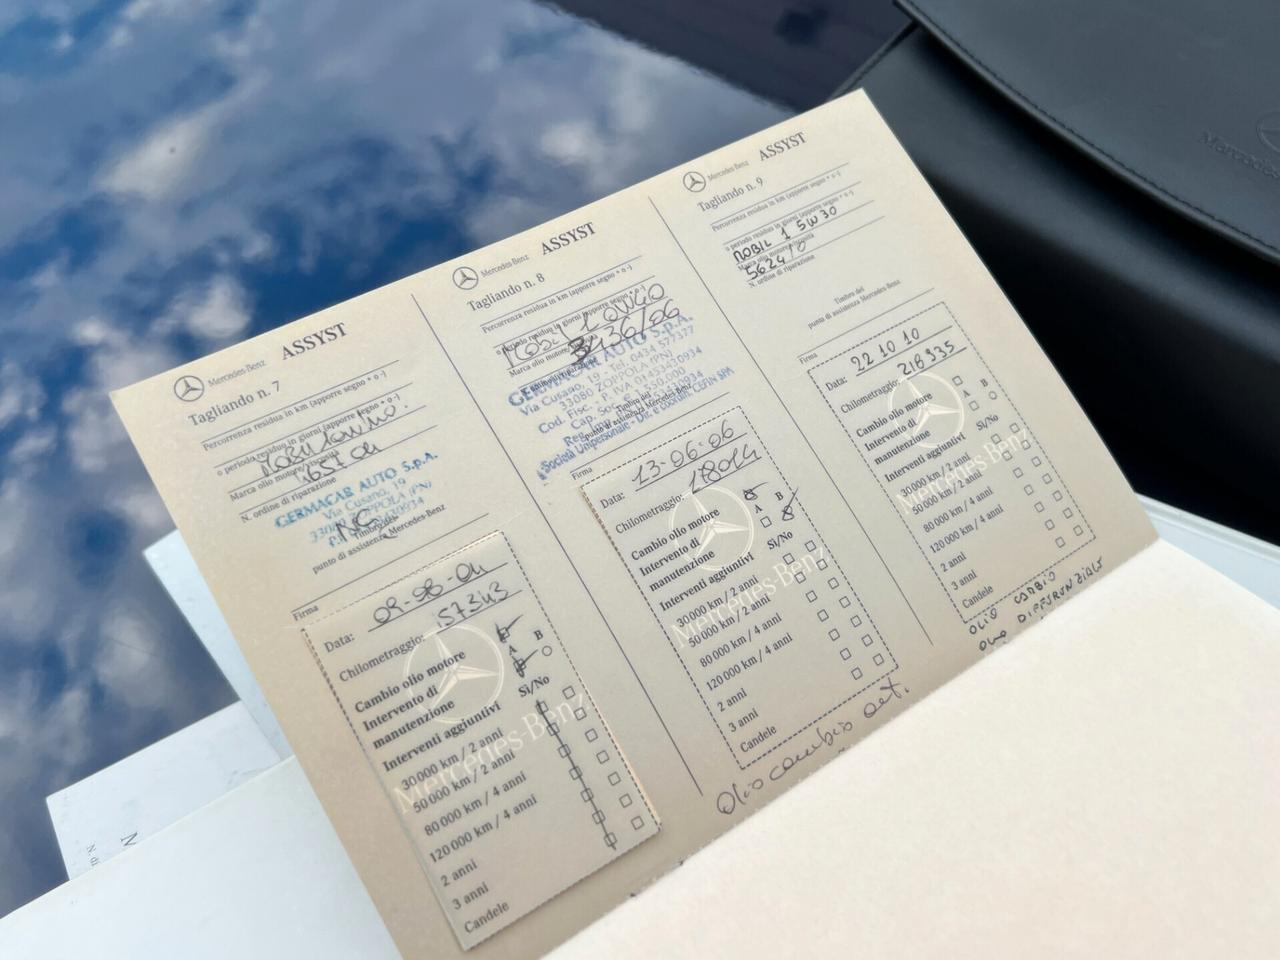 Mercedes-Benz ASSYST
Tagliando n. 7
Percorrenza residua in km (apporre segno + o -)
o periodo residuo in giorni (apporre segno + o -)
Marca olio motore/viscosità
N. ordine di riparazione
GERMACAR AUTO S.p.A.
Via Cusano, 19
33080 ZOPPOLA (PN)
Timbro del
punto di assistenza Mercedes-Benz
Firma
Data:
Chilometraggio: 157343
Cambio olio motore
Intervento di A B
manutenzione
Interventi aggiuntivi Sì/No
30 000 km / 2 anni
50 000 km / 2 anni
80 000 km / 4 anni
120 000 km / 4 anni
2 anni
3 anni
Candele
Mercedes-Benz
Mercedes-Benz ASSYST
Tagliando n. 8
Percorrenza residua in km (apporre segno + o -)
o periodo residuo in giorni (apporre segno + o -)
Mobil 1 0W40
Marca olio motore/
3436/06
GERMACAR AUTO S.p.A.
Via Cusano, 19 - Tel. 0434 577377
33080 ZOPPOLA (PN)
Cod. Fisc. - P. IVA 01453430934
Cap. Soc. € 1.550.000
Timbro del
punto di assistenza Mercedes-Benz
Società Unipersonale - Dir. e coordin. CEFIN SPA
Firma
Data: 13-06-06
Chilometraggio:
Cambio olio motore
Intervento di A B
manutenzione
Interventi aggiuntivi Sì/No
30 000 km / 2 anni
50 000 km / 2 anni
80 000 km / 4 anni
120 000 km / 4 anni
2 anni
3 anni
Candele
Mercedes-Benz
Olio cambio aut.
Mercedes-Benz ASSYST
Tagliando n. 9
Percorrenza residua in km (apporre segno + o -)
o periodo residuo in giorni (apporre segno + o -)
MOBIL 1 5W30
Marca olio motore/viscosità
5624/0
N. ordine di riparazione
Timbro del
punto di assistenza Mercedes-Benz
Firma
Data: 22 10 10
Chilometraggio: 216335
Cambio olio motore
Intervento di A B
manutenzione
Interventi aggiuntivi Sì/No
30 000 km / 2 anni
50 000 km / 2 anni
80 000 km / 4 anni
120 000 km / 4 anni
2 anni
3 anni
Candele
Mercedes-Benz
OLIO CAMBIO
OLIO DIFFERENZIALE